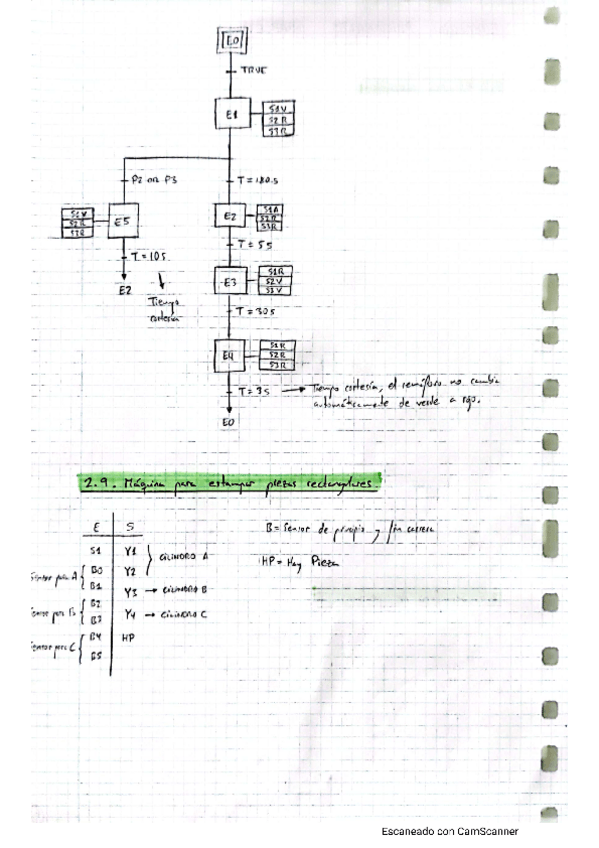 E0
TRUE
E1
S1V
S2R
S3R
P2 OR P3
T = 180s
S1V
S2R
S3R
E5
E2
S1A
S2R
S3R
T = 10s
T = 5s
E2
E3
S1R
S2V
S3V
Tiempo
cortesía
T = 30s
E4
S1R
S2R
S3R
T = 3s → Tiempo cortesía, el semáforo no cambia
automáticamente de verde a rojo.
E0
2.9. Máquina para estampar piezas rectangulares
E S
B = Sensor de principio y fin carrera
S1 Y1
CILINDRO A
HP = Hay Pieza
Sensor para A B0 Y2
B1 Y3 → CILINDRO B
Sensor para B B2
B3 Y4 → CILINDRO C
Sensor para C B4 HP
B5
Escaneado con CamScanner